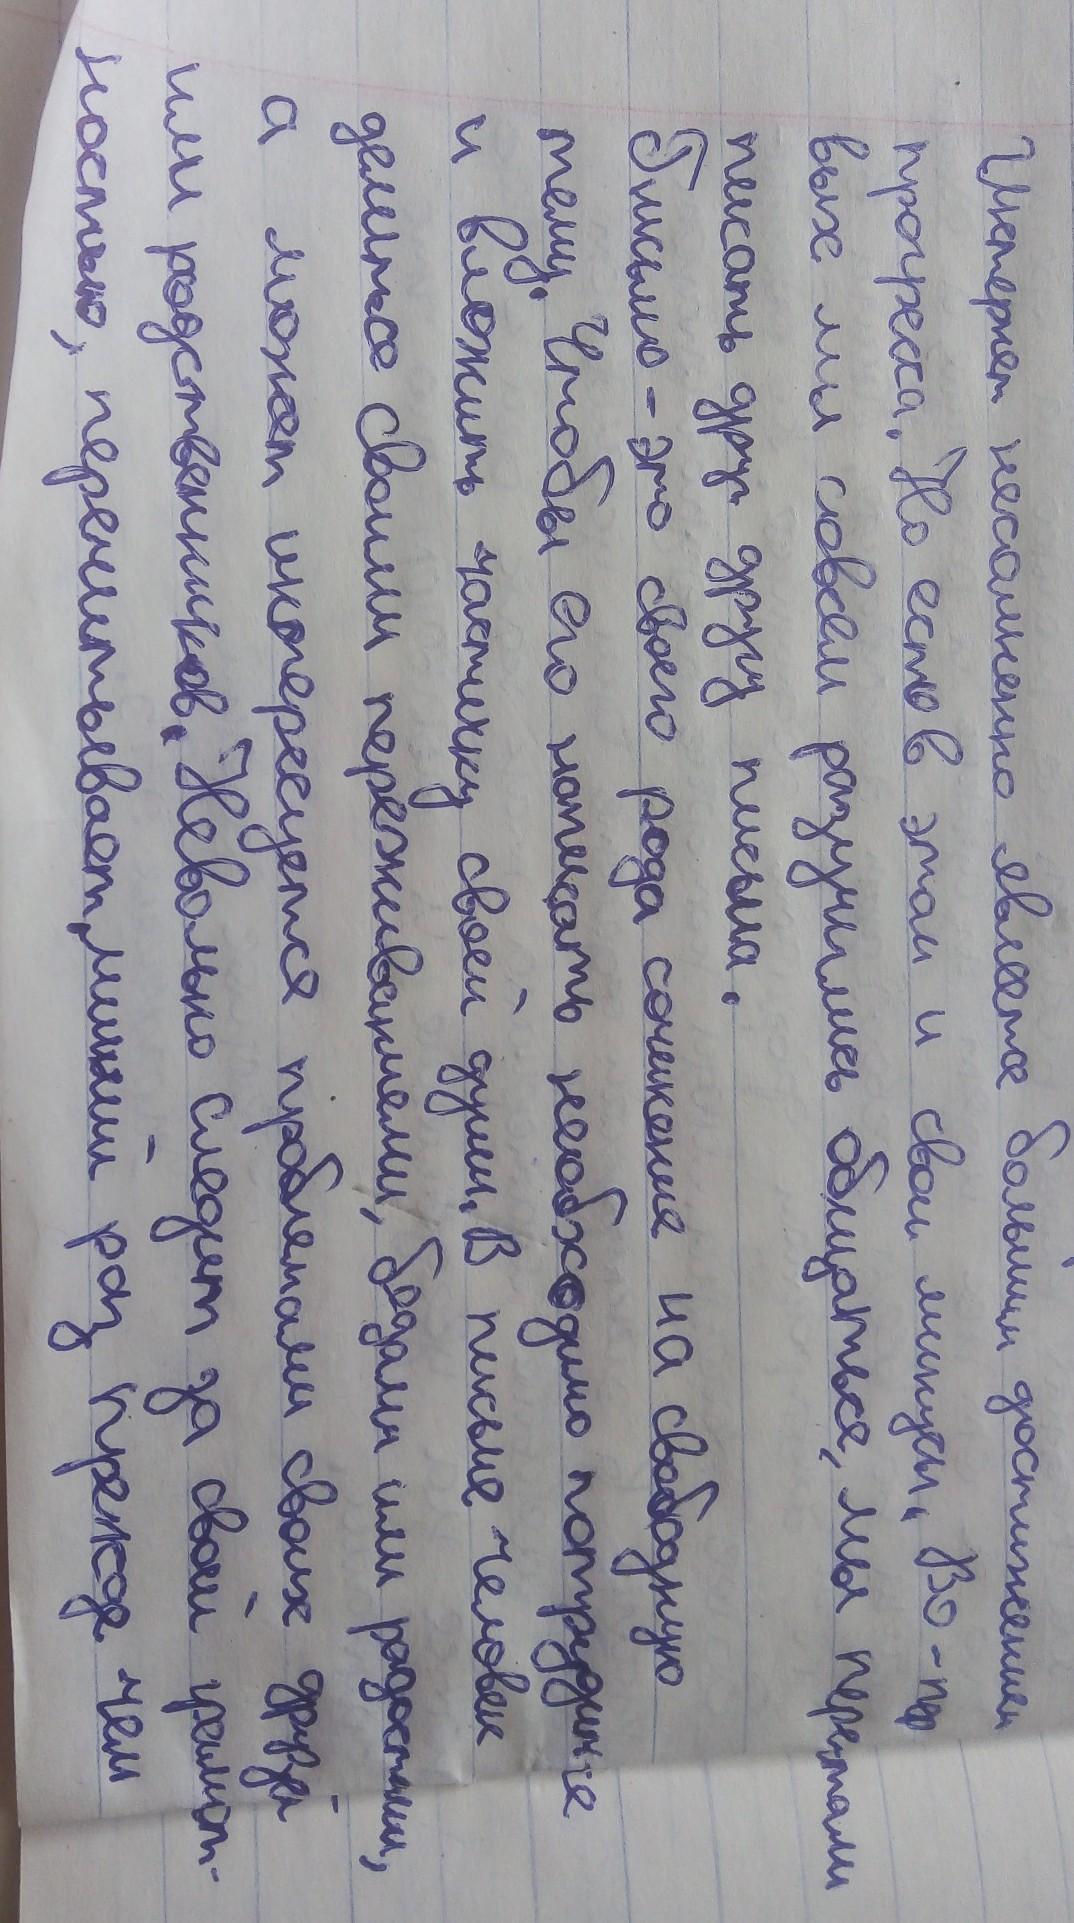 Интернет несомненно являетсе большим достижением
прогресса. Но есть в этом и свои минусы. Во-пер
вых мы совсем разучились общаться, мы перестали
писать друг другу письма.
Письмо - это своего рода сочинение на свободную
тему. Чтобы его написать необходимо потрудится
и вложить частичку своей души. В письме человек
делиться своими переживаниями, бедами или радостями,
а может интересуется проблемами своих друзей
или родственников. Невольно следит за своей грамот-
ностью, перечитывает, лишний раз прежде чем